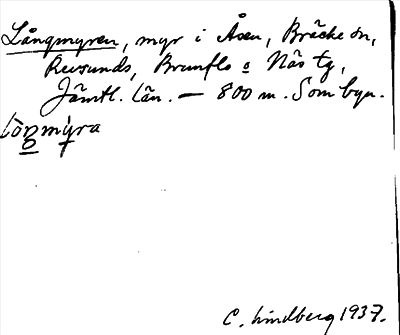 Långmyren, myr i Åsen, Bräcke sn,
Revsunds, Brunflo o Näs tg,
Jämtl. län. — 800 m. Som byn.
lòŋmýra
C. Lindberg 1937.